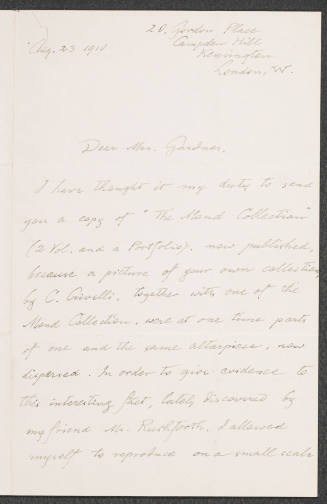 20, Gordon Place
Campden Hill
Kensington
London, W.
Aug. 23 1910
Dear Mrs. Gardner,
I have thought it my duty to send
you a copy of "The Mond Collection"
(2 Vol. and a Portfolio), now published,
because a picture of your own collection
by C. Crivelli, together with one of the
Mond Collection, were at one time parts
of one and the same altarpiece, now
dispersed. In order to give evidence to
this interesting fact, lately discovered by
my friend Mr. Rushforth, I allowed
myself to reproduce on a small scale